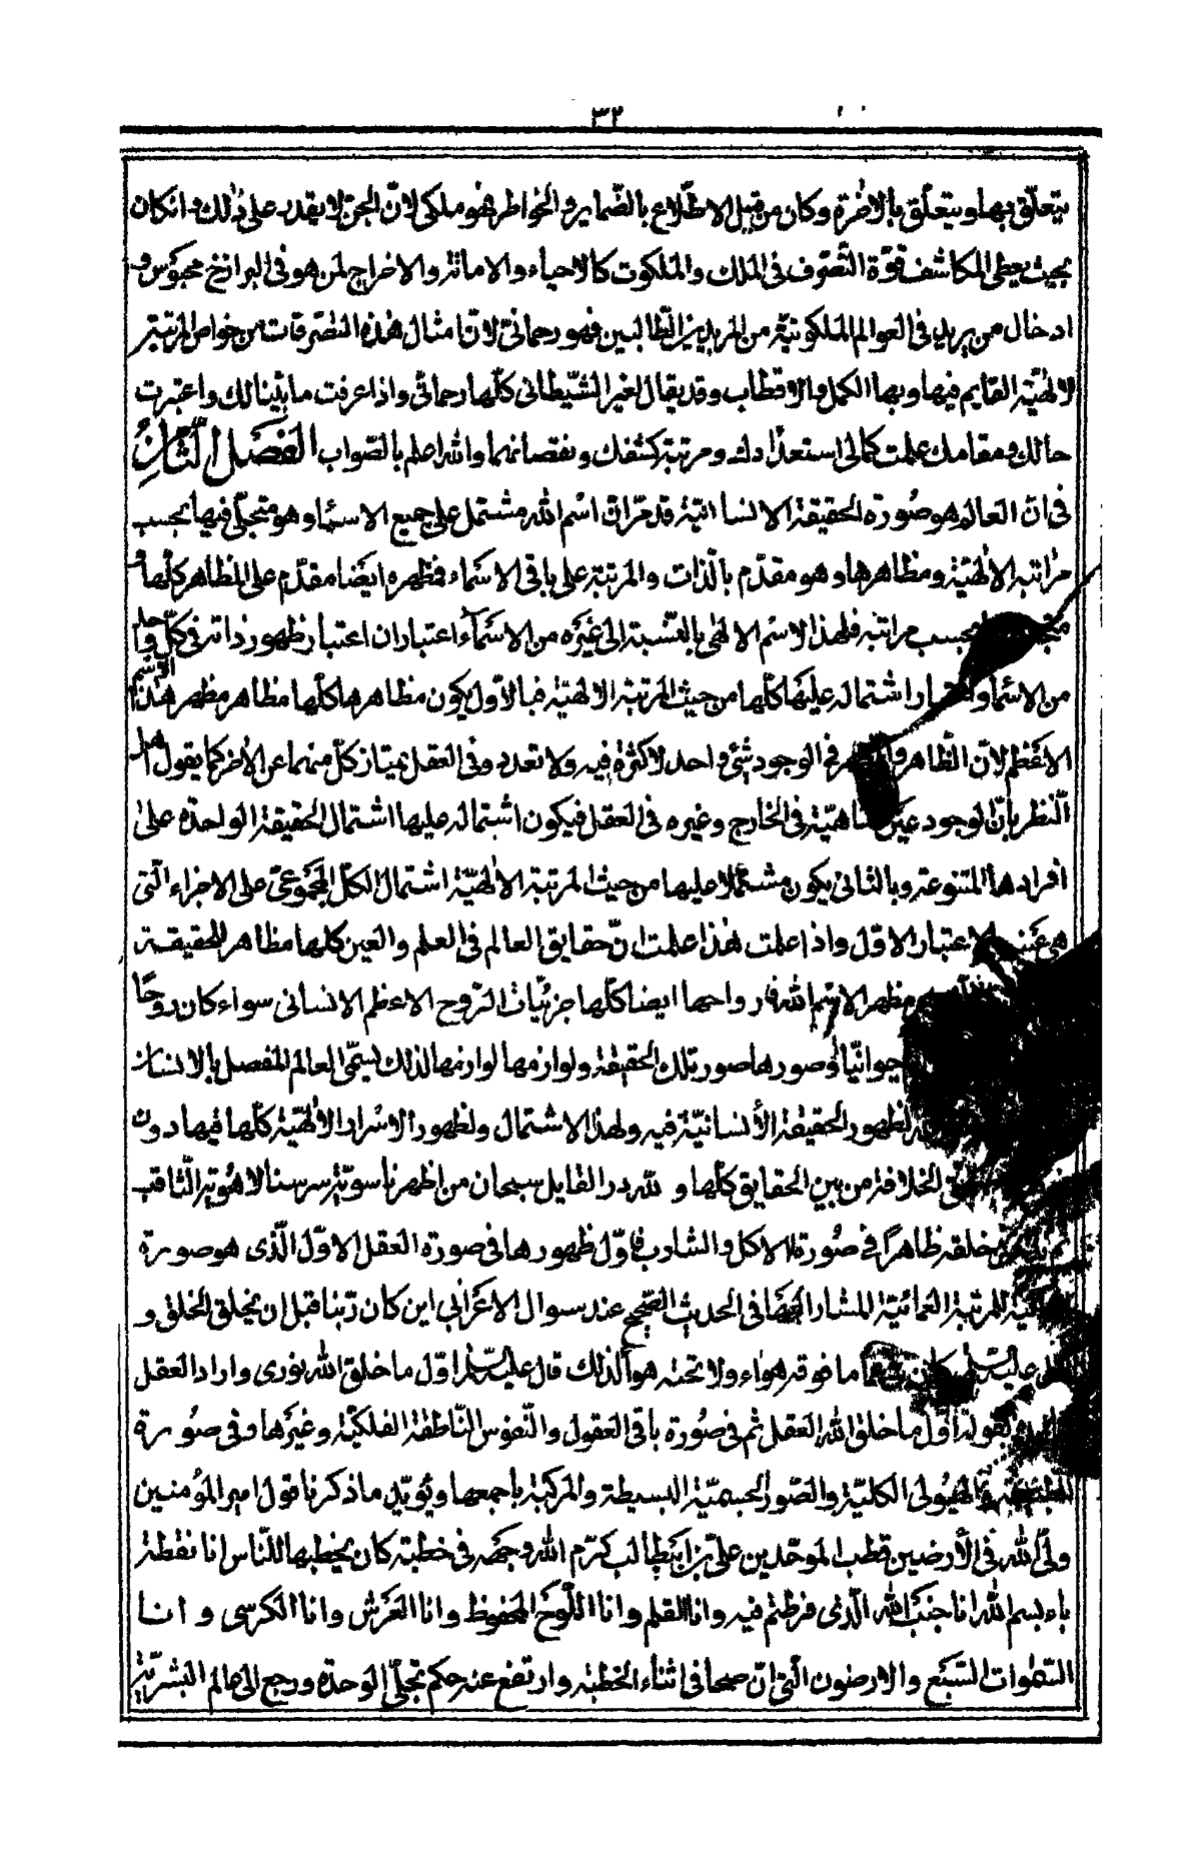 ٣٢
يتعلّق بها ويتعلّق بالاخرة وكان من قبيل الاطّلاع بالضّماير والخواطر فهو ملكى لانّ الجنّ لا يقدر على ذلك وانكان
بحيث يعطى المكاشف قوّة التّصرف فى الملك والملكوت كالاحياء والاماتة والاخراج لمن هو فى البرازخ محبوس و
ادخال من يريد فى العوالم الملكوتية من المريدين الطالبين فهو رحمانى لانّ امثال هذه التصرّفات من خواص المرتبة
الالهيّة القايم فيها وبها الكمل والاقطاب وقد يقال لغير الشّيطانى كلّها رحمانى واذا عرفت ما بيّنا لك واعتبرت
حالك ومقامك علمت كمالى استعدادك ومرتبة كشفك ونقصانهما والله اعلم بالصّواب الفصل الثّامن
فى انّ العالم هو صورة الحقيقة الانسانيّة قد مرّ انّ اسم الله مشتمل على جميع الاسماء وهو متجلّى فيها بحسب
مراتبه الالهيّة ومظاهرها وهو مقدّم بالّذات والمرتبة على باقى الاسماء فظهره ايضا مقدّم على المظاهر كلّها و
بحسب مراتبه فلهذا الاسم الالهى بالنّسبة الى غيره من الاسماء اعتباران اعتبار ظهور ذاته فى كلّ واحد
من الاسماء و اشتماله عليها كلّها من حيث المرتبة الالهيّة فبالاوّل يكون مظاهرها كلّها مظاهر مظهر هذا الاسم
الاعظم لانّ الظّاهر و فى الوجود شئ واحد لا كثرة فيه ولا تعدد وفى العقل يمتاز كلّ منهما عن الاخر كما يقول اهل
النّظر بانّ الوجود عين الماهيّة فى الخارج وغيره فى العقل فيكون اشتماله عليها اشتمال الحقيقة الواحدة على
افرادها المتنوعة وبالثانى يكون مشتملا عليها من حيث المرتبة الالهيّة اشتمال الكلّ المجموعىّ على الاجزاء الّتى
هى عينه الاعتبار الاوّل واذا علمت هذا علمت انّ حقايق العالم فى العلم والعين كلها مظاهر للحقيقة
مظهر الاسم الله فارواحها ايضا كلّها جزئيّات الرّوح الاعظم الانسانى سواء كان روحا
حيوانيّا وصورها صور تلك الحقيقة ولوازمها لوازمها لذلك يسمّى العالم المفصل بالانسان
لظهور الحقيقة الأنسانيّة فيه ولهذا الاشتمال ولظهور الاسرار الالهيّة كلّها فيها دون
الخلافة من بين الحقايق كلّها و لله در القايل سبحان من اظهر ناسوته سر سنا لاهوته الثّاقب
خلقه ظاهراً فى صورة الاكل والشارب فاوّل ظهورها فى صورة العقل الاوّل الّذى هو صورة
للمرتبة العمائيّة المشار اليها فى الحديث الصّحيح عند سؤال الاعرابى اين كان ربّنا قبل ان يخلق الخلق و
عليه السّلم كان فى عما ما فوقه هواء ولا تحته هواء لذلك قال عليه السّلم اوّل ما خلق الله نورى واراد العقل
بقوله اوّل ما خلق الله العقل ثم فى صورة باقى العقول والنّفوس النّاطقة الفلكيّة وغيرها وفى صورة
الهيولى الكليّة والصّور الجسميّة البسيطة والمركبة باجمعها ويؤيّد ما ذكرنا قول امير المؤمنين
ولىّ الله فى الأرضين قطب الموحّدين علىّ بن ابيطالب كرّم الله وجهه فى خطبة كان يخطبها للنّاس انا نقطة
باء بسم الله انا جنب الله الّذى فرطتم فيه وانا القلم وانا اللّوح المحفوظ وانا العرش وانا الكرسى و انا
السّموات السّبع والارضون الى ان صحا فى اثناء الخطبة وارتفع عنه حكم تجلّى الوحدة ورجع الى عالم البشريّة